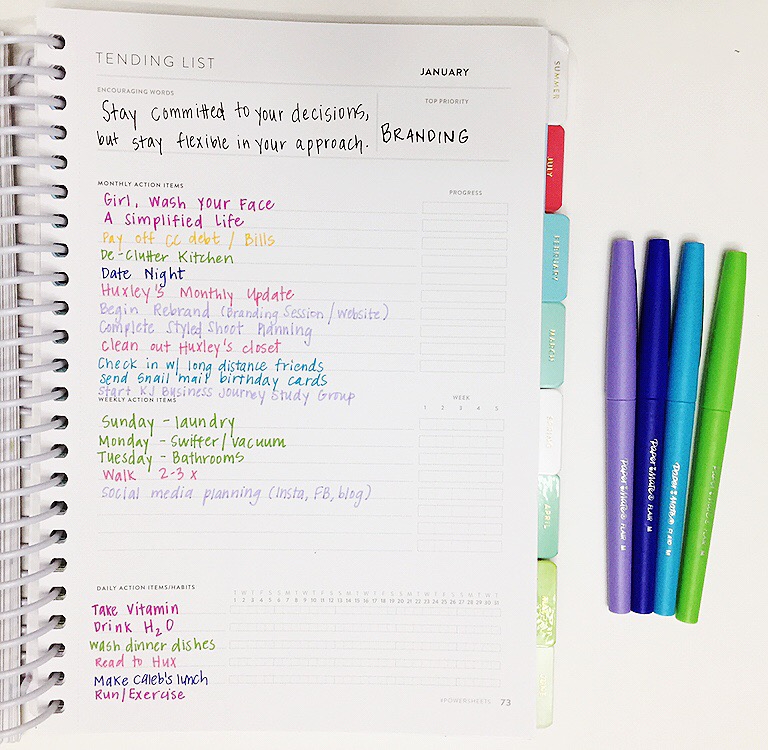 TENDING LIST
JANUARY
ENCOURAGING WORDS
TOP PRIORITY
Stay committed to your decisions,
but stay flexible in your approach.
BRANDING
MONTHLY ACTION ITEMS
PROGRESS
Girl, Wash Your Face
A Simplified Life
Pay off CC debt / Bills
De-Clutter Kitchen
Date Night
Huxley's Monthly Update
Begin Rebrand (Branding Session / Website)
Complete Styled Shoot Planning
Clean out Huxley's closet
Check in w/ long distance friends
Send snail mail birthday cards
Start KJ Business Journey Study Group
WEEKLY ACTION ITEMS
WEEK
1 2 3 4 5
Sunday - laundry
Monday - Swiffer / vacuum
Tuesday - Bathrooms
Walk 2-3 x
Social media planning (Insta, FB, blog)
DAILY ACTION ITEMS/HABITS
T W T F S S M T W T F S S M T W T F S S M T W T F S S M T W T
1 2 3 4 5 6 7 8 9 10 11 12 13 14 15 16 17 18 19 20 21 22 23 24 25 26 27 28 29 30 31
Take Vitamin
Drink H2O
Wash dinner dishes
Read to Hux
Make Caleb's lunch
Run/Exercise
#POWERSHEETS 73
SUMMER
JULY
FEBRUARY
MARCH
APRIL
PAPER MATE FLAIR M
PAPER MATE FLAIR M
PAPER MATE FLAIR M
PAPER MATE FLAIR M